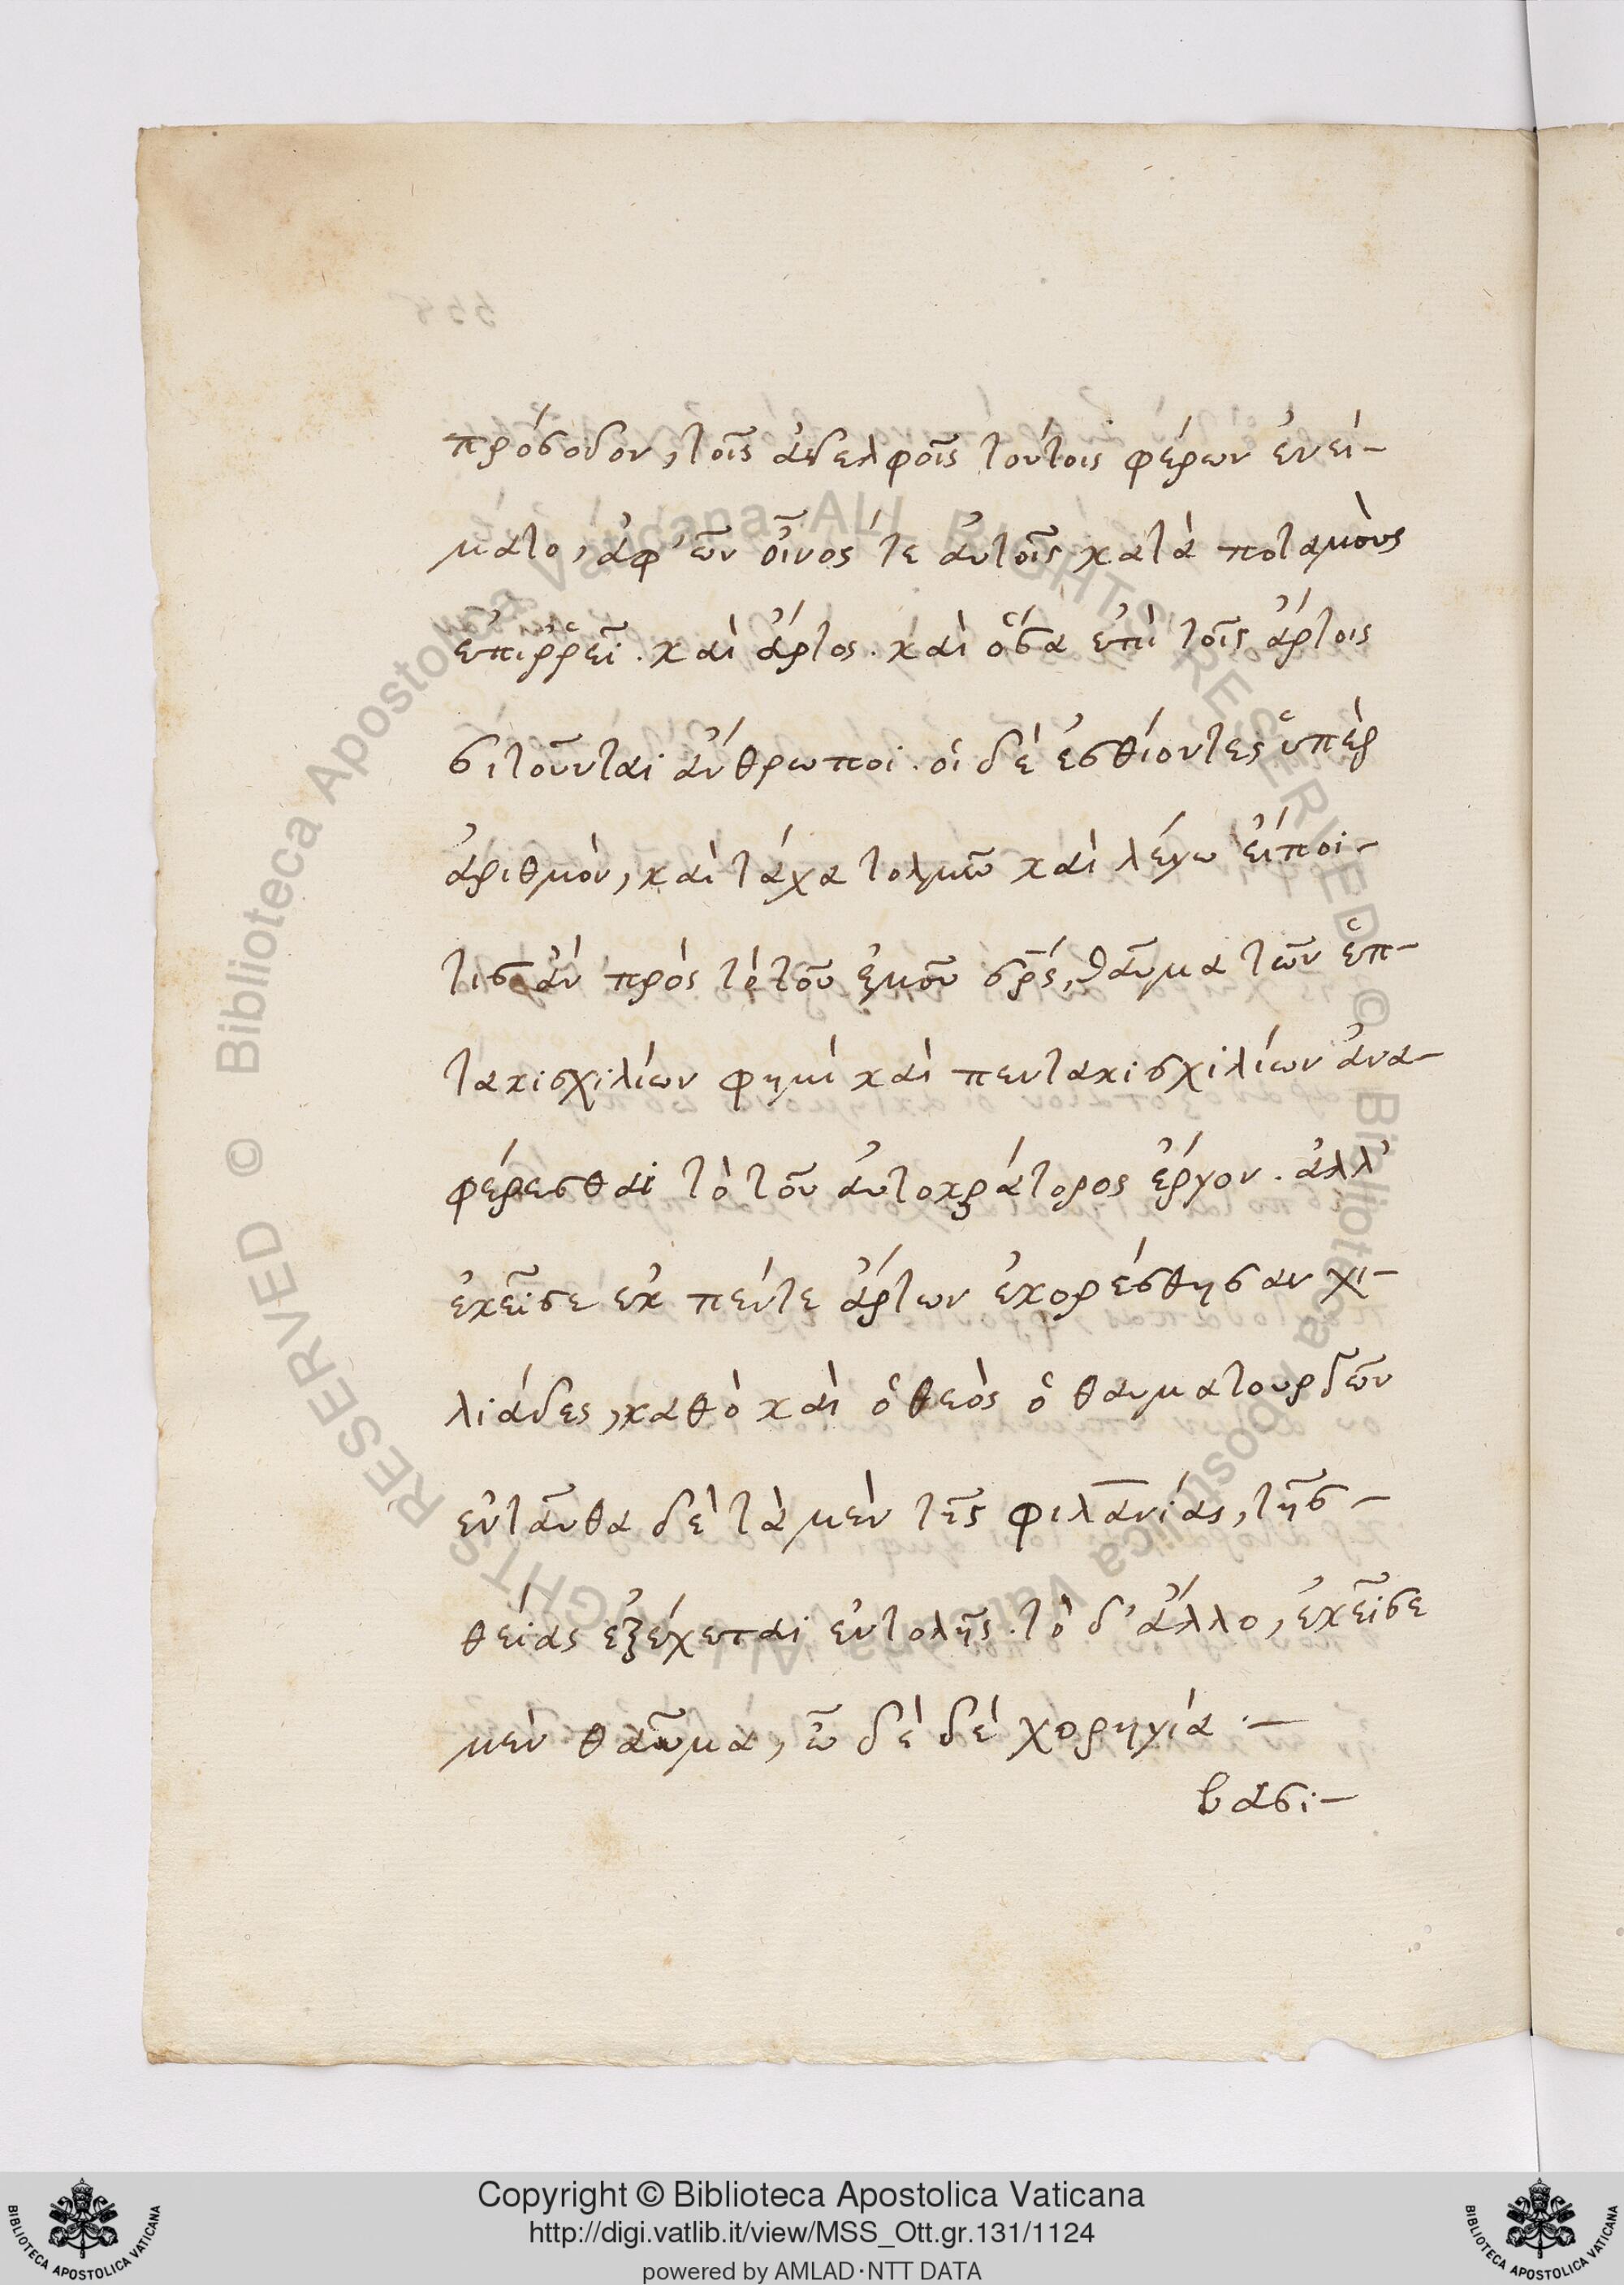 πρόσοδον, τοῖς ἀδελφοῖς τούτοις φέρων ἐνεί-
ματο, ἀφ' ὧν οἶνος τε ἀυτοῖς κατὰ ποταμοὺς
ἐπιῤῥεῖ. καὶ ἄρτος. καὶ ὅσα ἐπὶ τοῖς ἄρτοις
σιτοῦνται ἄνθρωποι. οἱ δὲ ἐσθίοντες ὑπὲρ
ἀριθμὸν, καὶ τάχα τολμῶ καὶ λέγω εἴποι-
τις ἂν πρὸς τὸ τοῦ ἐμοῦ σρ̅ς, θαῦμα τῶν ἑπ-
τακισχιλίων φημὶ καὶ πεντακισχιλίων ἀνα-
φέρεσθαι τὸ τοῦ ἀυτοκράτορος ἔργον. ἀλλ'
ἐκεῖσε ἐκ πέντε ἄρτων ἐκορέσθησαν χι-
λιάδες, καθὸ καὶ ὁ θεὸς ὁ θαυματουργῶν
ἐνταῦθα δὲ τὰ μὲν τῆς φιλα̅νίας, τῆς
θείας ἐξέχεται ἐντολῆς. τὸ δ' ἄλλο, ἐκεῖσε
μὲν θαῦμα, ὧ δὲ δὲ χορηγία.
βασι-
Copyright © Biblioteca Apostolica Vaticana
http://digi.vatlib.it/view/MSS_Ott.gr.131/1124
powered by AMLAD·NTT DATA